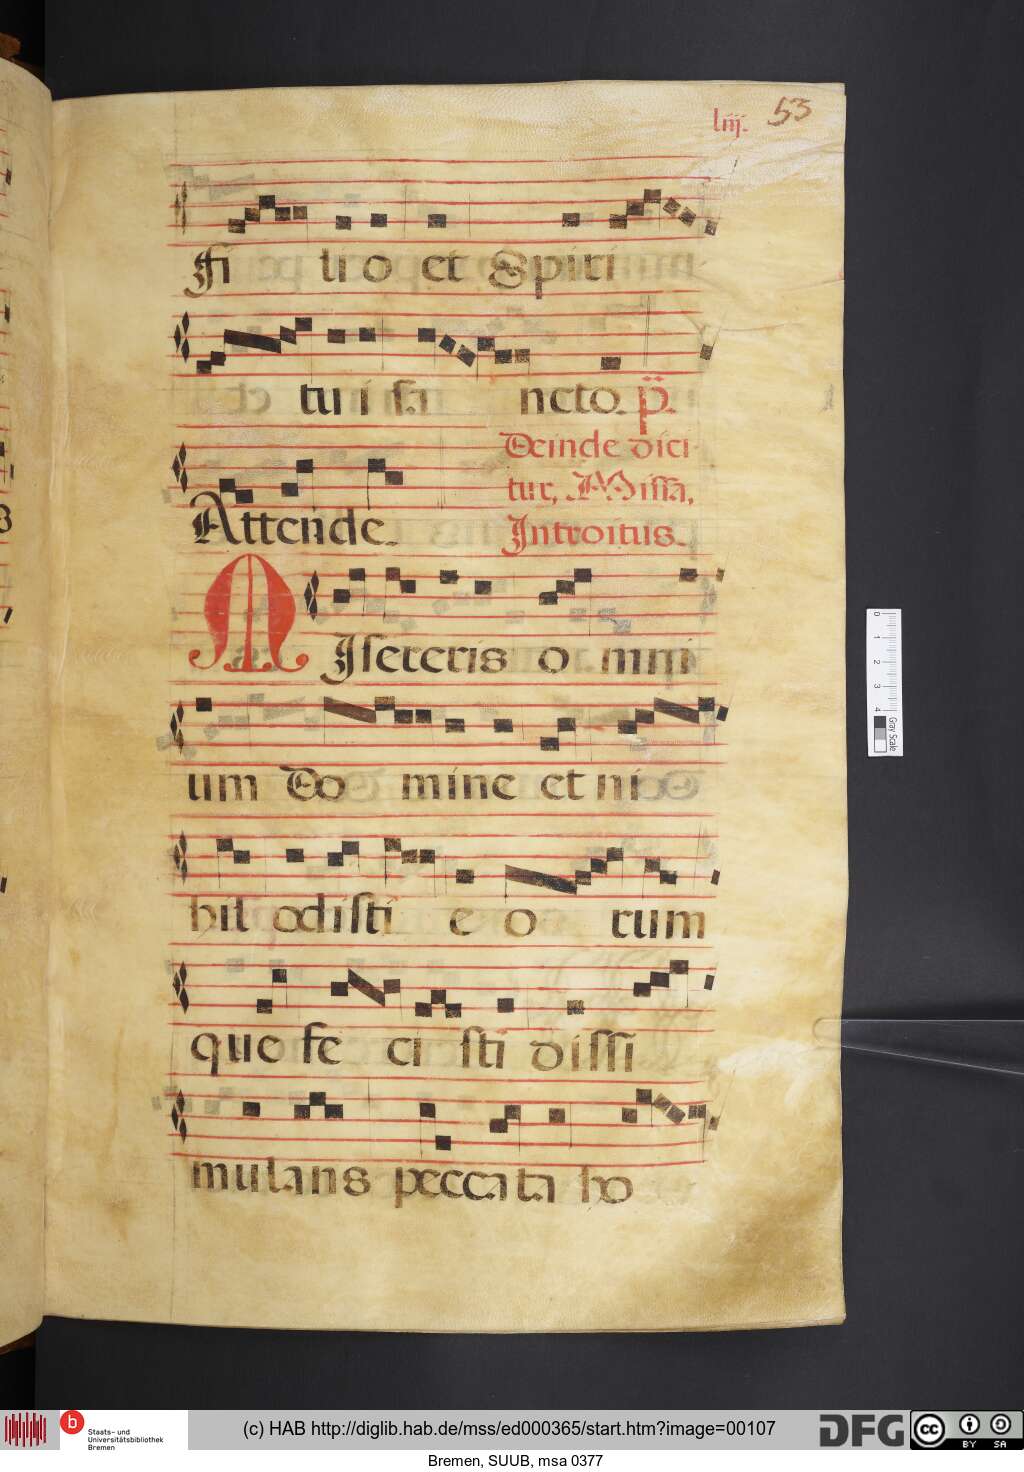 liij. 53
Fi lio et Spiri
tui sa ncto. p̈.
Deinde dici
tur, Missa,
Attende.
Introitus.
MIsereris o mni
um Do mine et ni
hil odisti e o rum
que fe ci sti dissi
mulans peccata ho
0 1 2 3 4 Gray Scale
b Staats- und
Universitätsbibliothek
Bremen
(c) HAB http://diglib.hab.de/mss/ed000365/start.htm?image=00107
DFG
cc BY SA
Bremen, SUUB, msa 0377